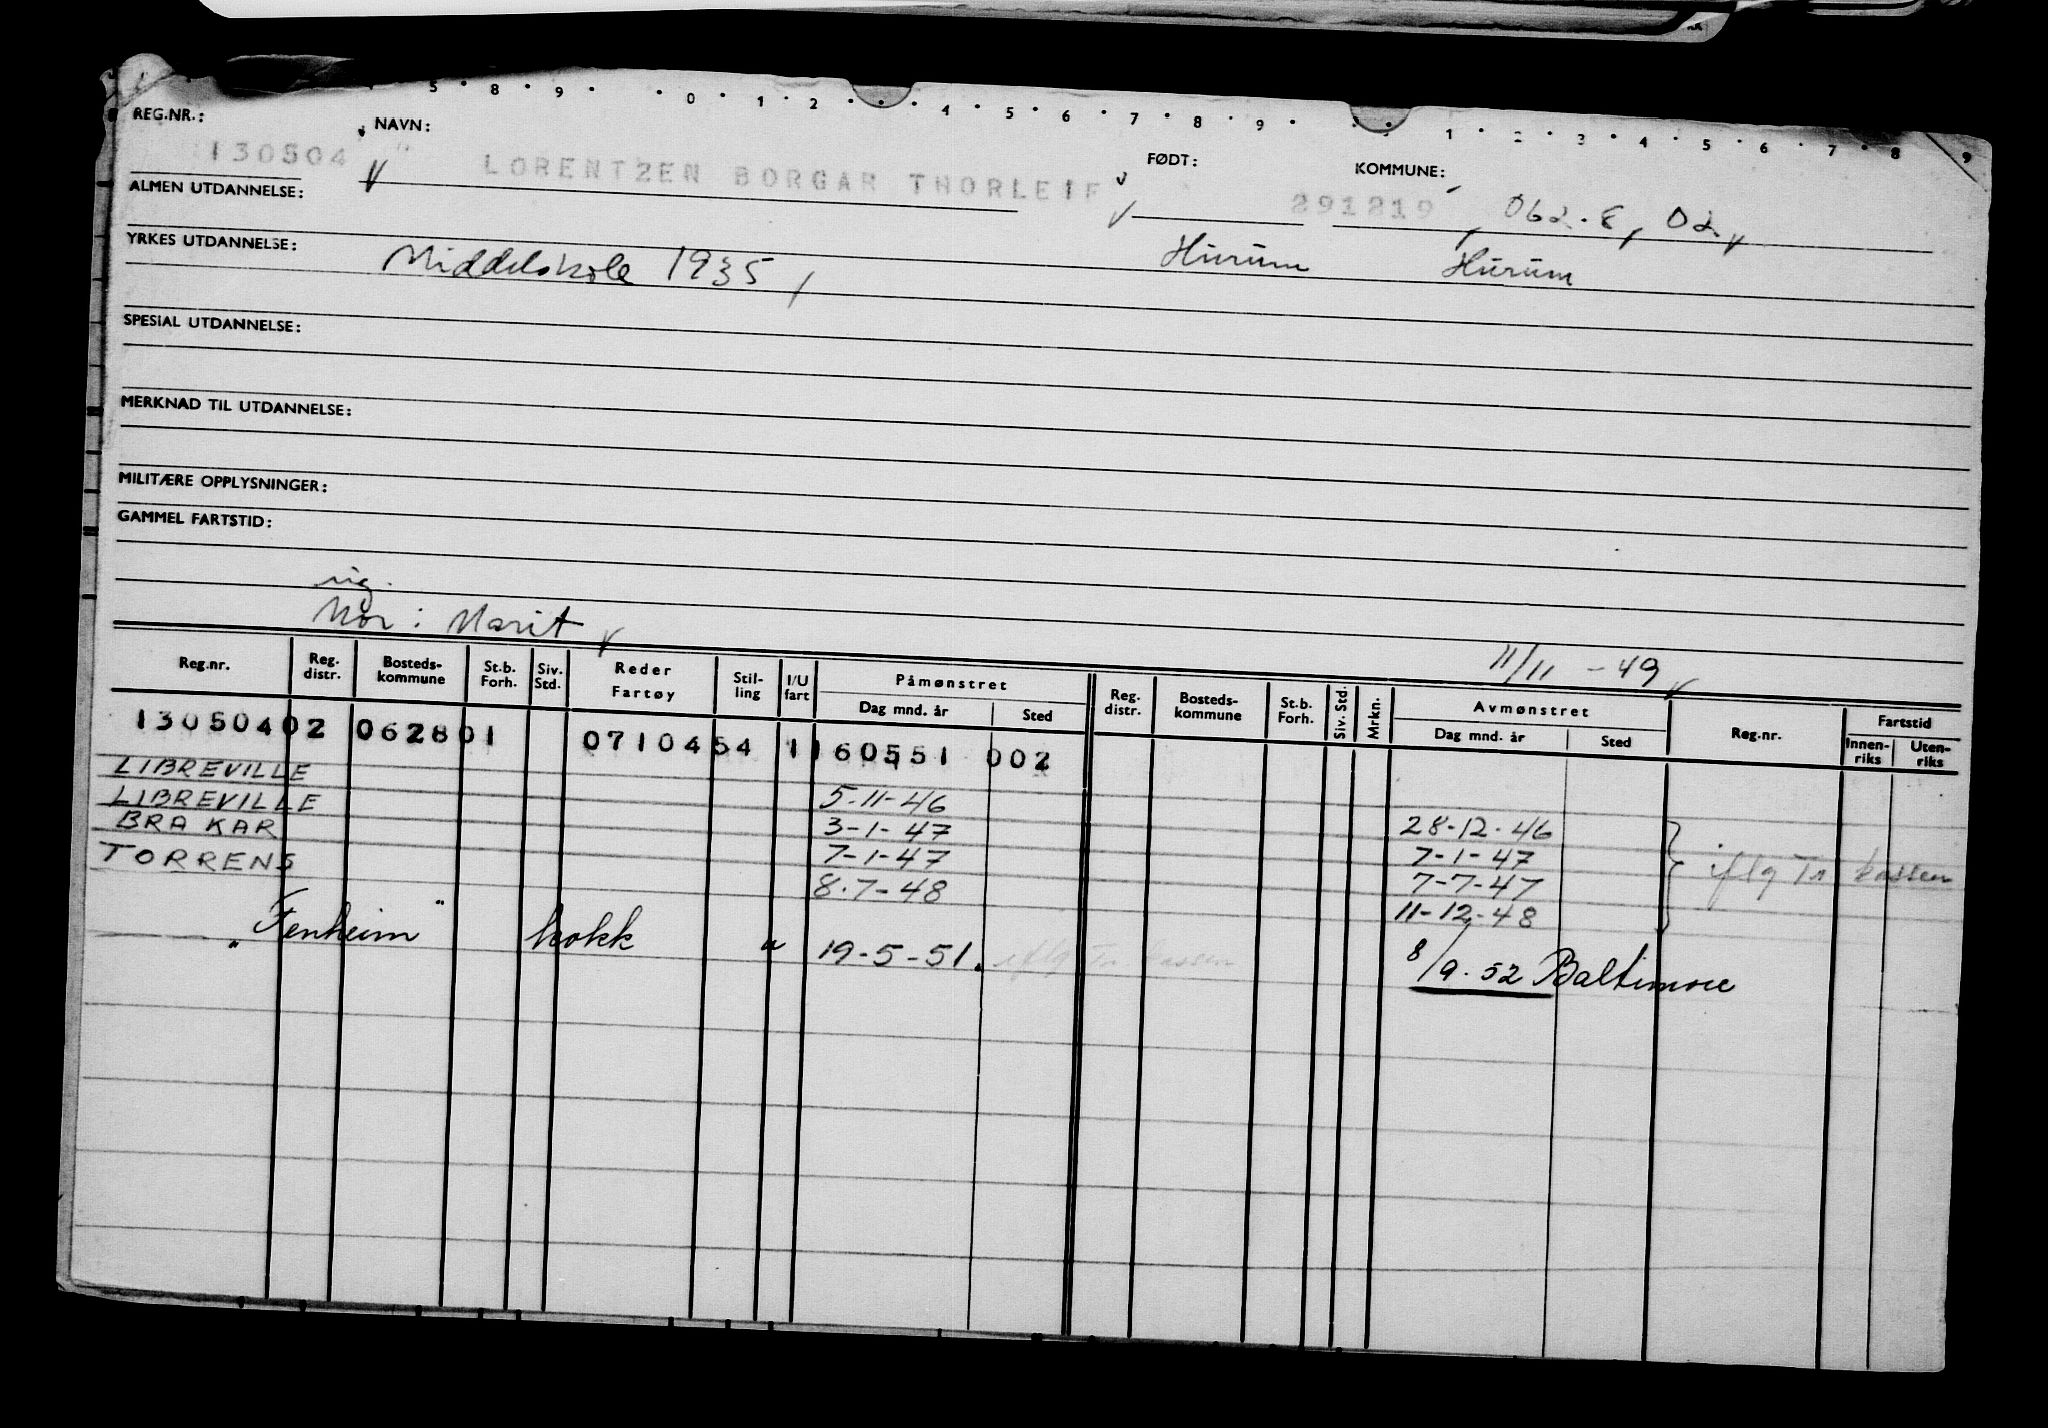 5 · 8 · 9 · · 0 · 1 · 2 · · 4 · 5 · 6 · 7 · 8 · 9 · · · 1 · 2 · 3 · 4 · 5 · 6 · 7 · 8 9
REG.NR.: NAVN: FØDT: KOMMUNE:
130504 LORENTZEN BORGAR THORLEIF 291219 062.8, 02
ALMEN UTDANNELSE:
YRKES UTDANNELSE: Middelskole 1935 Hurum Hurum
SPESIAL UTDANNELSE:
MERKNAD TIL UTDANNELSE:
MILITÆRE OPPLYSNINGER:
GAMMEL FARTSTID:
ug.
Mor: Marit 11/11 - 49
Reg.nr. Reg. distr. Bosteds-kommune St.b. Forh. Siv. Std. Reder Fartøy Stil-ling I/U fart Påmønstret Dag mnd. år Sted Reg. distr. Bosteds-kommune St.b. Forh. Siv. Std. Mrkn. Avmønstret Dag mnd. år Sted Reg.nr. Fartstid Innen-riks Uten-riks
13050402 062801 0710454 1160551 002
LIBREVILLE 5-11-46 28-12-46
LIBREVILLE 3-1-47 7-1-47
BRA KAR 7-1-47 7-7-47 iflg Tr. kassen
TORRENS 8.7-48 11-12-48
"Fenheim" kokk " 19-5-51. iflg Tr. kassen 8/9.52 Baltimore